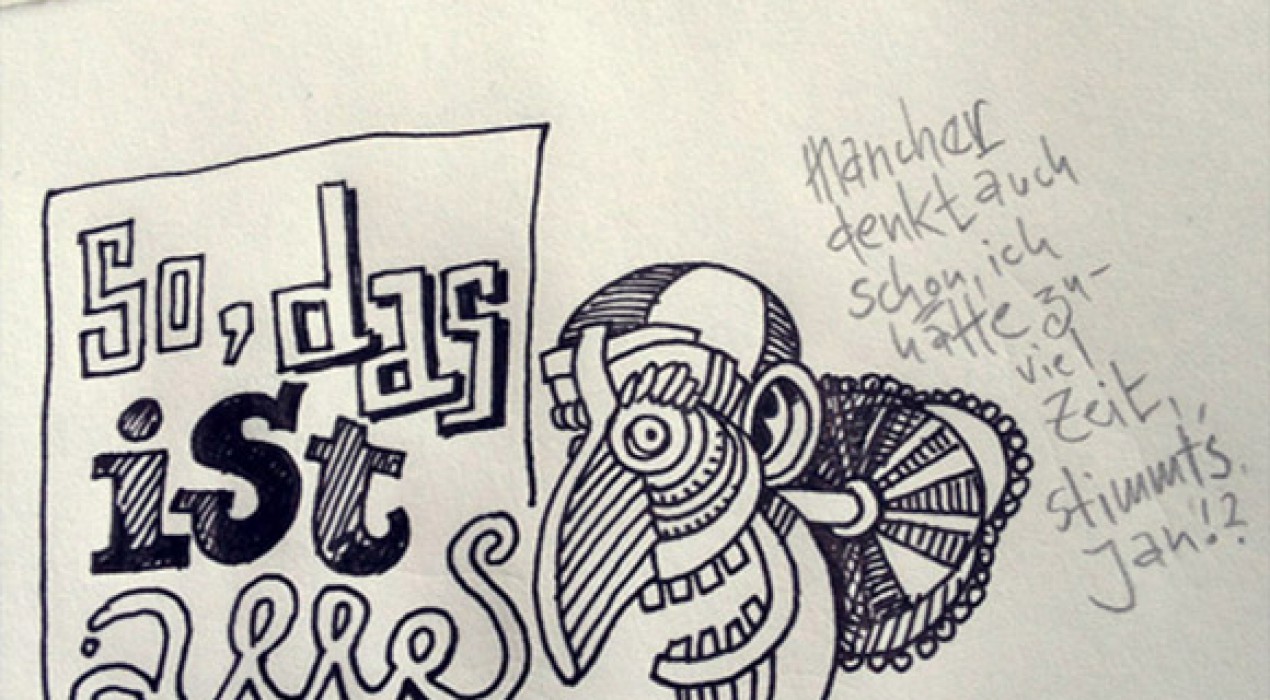 So, das
ist
alles
Mancher
denkt auch
schon, ich
hätte zu-
viel
Zeit,
stimmt's,
Jan!?